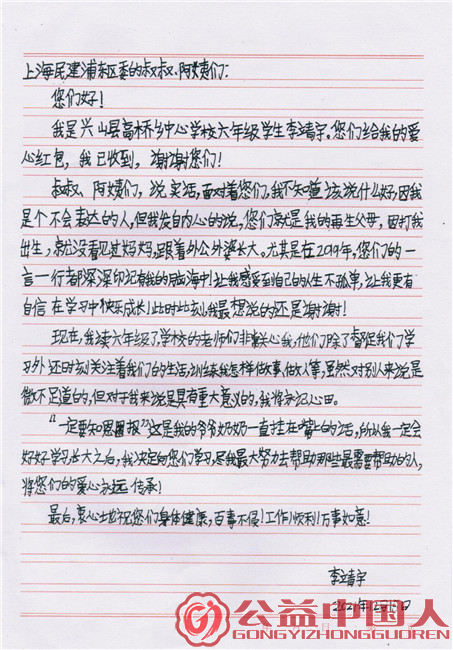 上海民建浦东区委的叔叔、阿姨们：
您们好！
我是兴山县高桥乡中心学校六年级学生李靖宇。您们给我的爱
心红包，我已收到，谢谢您们！
叔叔、阿姨们，说实话，面对着您们，我不知道该说什么好，因我
是个不会表达的人，但我发自内心的说，您们就是我的再生父母，因打我
出生，就没看见过妈妈，跟着外公外婆长大。尤其是在2019年，您们的一
言一行都深深印记在我的脑海中！让我感受到自己的人生不孤单，让我更有
自信在学习中快乐成长！此时此刻，我最想说的还是谢谢！
现在，我读六年级了，学校的老师们非常关心我，他们除了督促我们学
习外，还时刻关注着我们的生活，训练我怎样做事，做人等，虽然对别人来说是
微不足道的，但对于我来说是具有重大意义的，我将永记心田。
“一定要知恩图报”这是我的爷爷奶奶一直挂在嘴上的话，所以我一定会
好好学习，长大之后，我决定向您们学习，尽我最大努力去帮助那些最需要帮助的人，
将您们的爱心永远传承！
最后，衷心地祝您们身体健康，百事不侵！工作顺利！万事如意！
李靖宇
2021年12月15日
公益中国人
GONGYIZHONGGUOREN